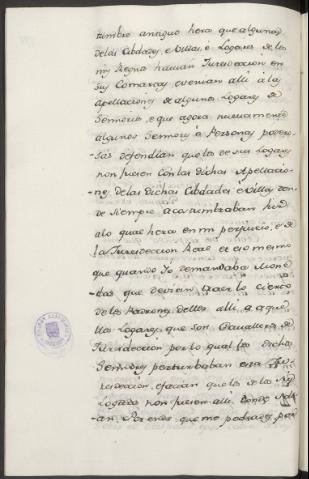 tumbre antiguo hera que algunas
de las Cibdades, e Villas, e Logares de los
mis Regnos havian Jurisdiccion en
sus Comarcas, e venian alli á las
apellaciones de algunos Logares de
Sennorio, e que agora nuevamente
algunos Sennores e Personas podero
sas defendian que los de sus Logares
non fuesen con las dichas Apellacio
nes de las dichas Cibdades e Villas don
de siempre acostumbraban hir
alo qual hera en mi perjuicio, e de
la Jurisdeccion Real et eso mesmo
que quando Yo demandaba Mone
das que devian traer lo cierto
de los Padrones dellos alli a aque
llas Logares, que son Cavalleros de
Jurisdeccion por lo qual los dichos
Sennores perturbaban esa Ju
risdeccion, e facian que los de los
Logares non fuesen alli donde
an. Porende que me pediades por